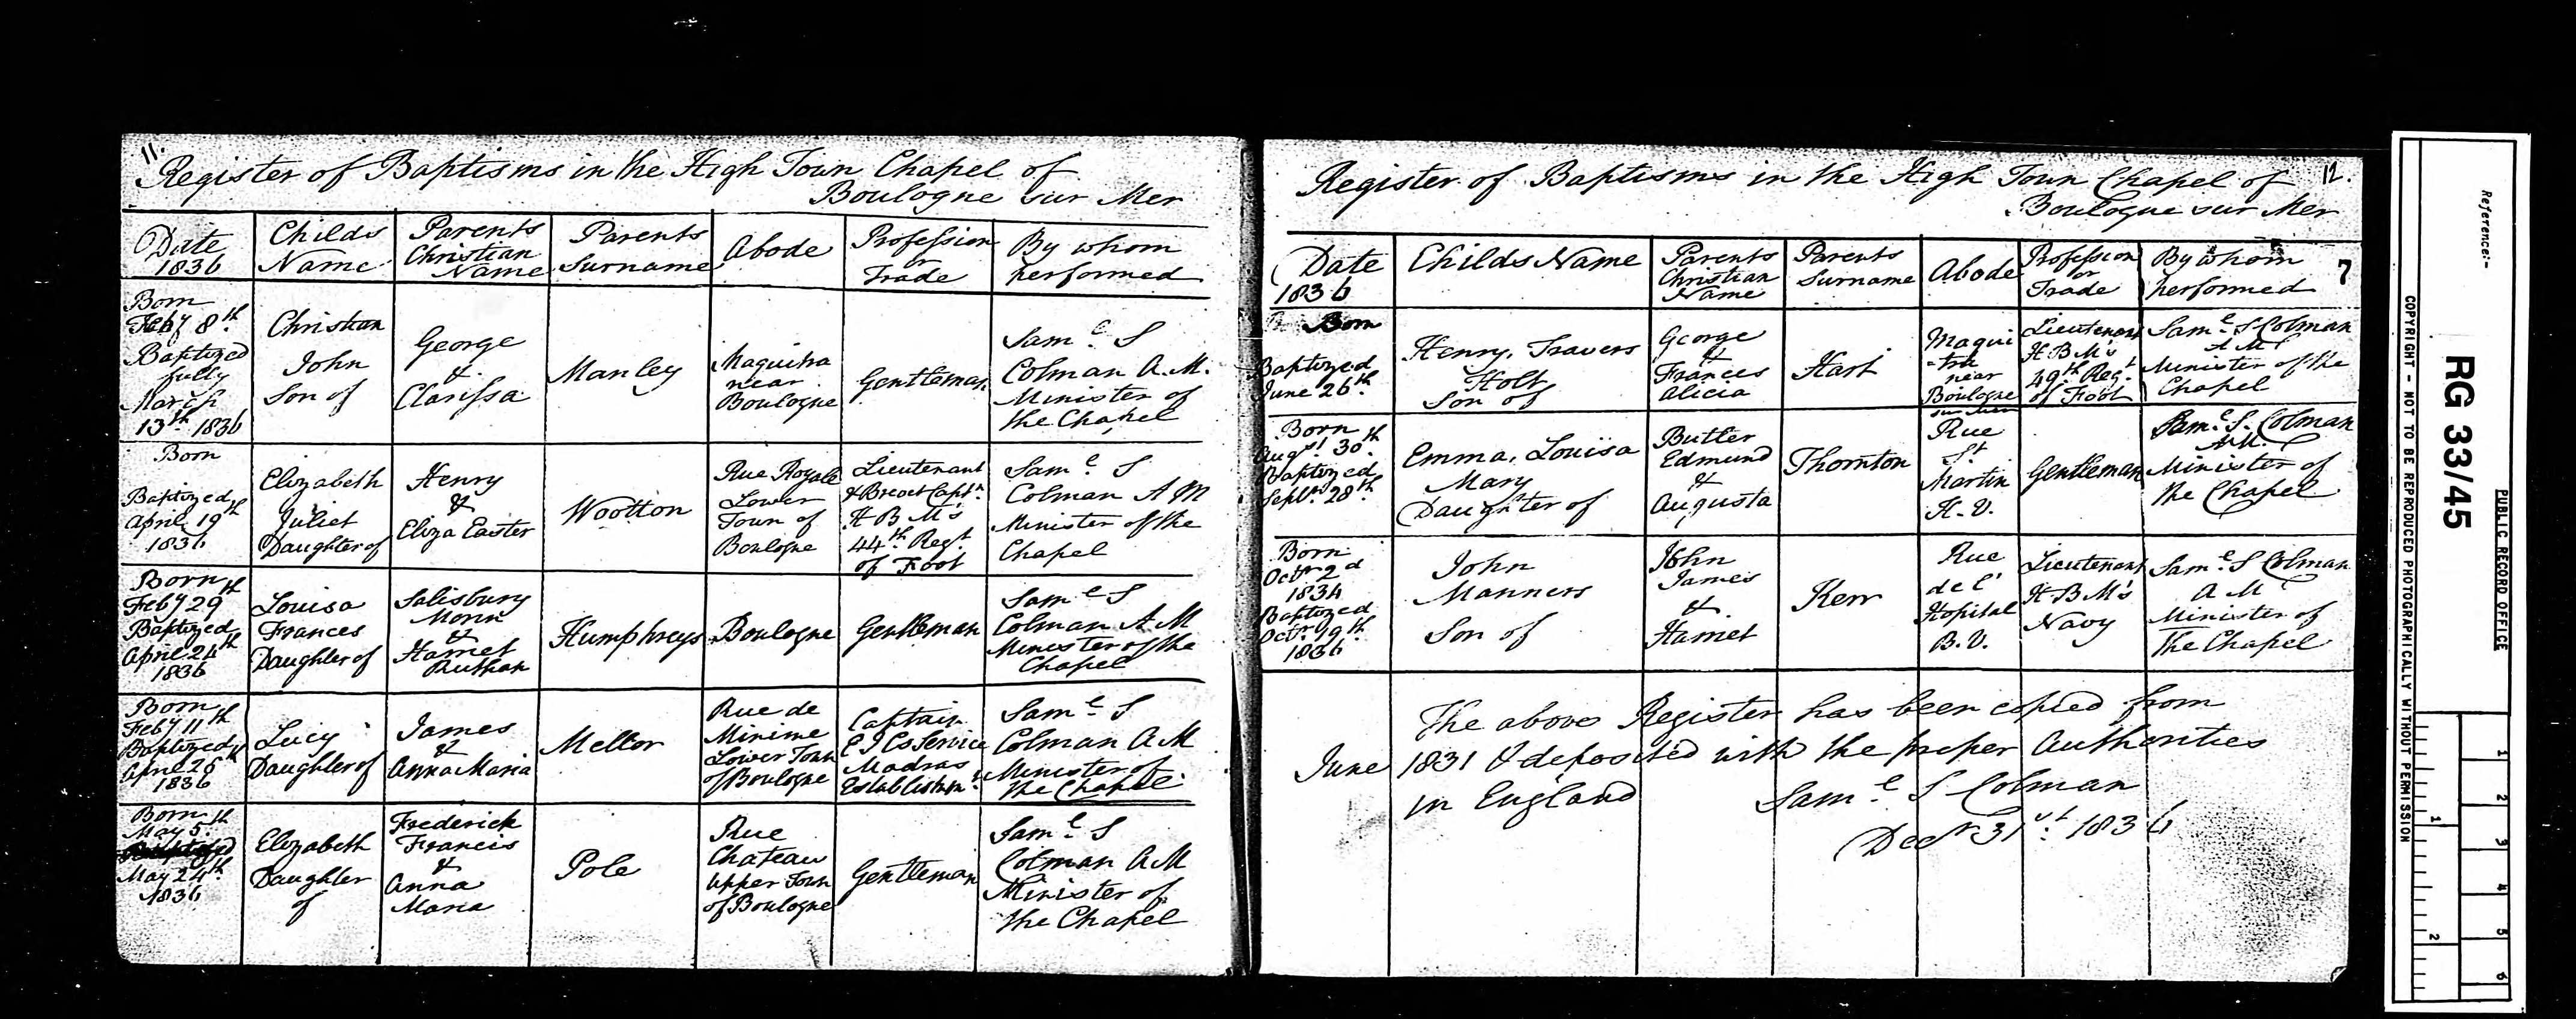 11.
Register of Baptisms in the High Town Chapel of
Boulogne sur Mer
Date 1836
Childs Name
Parents Christian Name
Parents Surname
Abode
Profession or Trade
By whom performed
Born
Feby 8th
Baptized
fully
March
13th 1836
Christian
John
Son of
George
&
Clarissa
Manley
near
Boulogne
Gentleman
Saml S
Colman A.M.
Minister of
the Chapel
Born
Baptized
April 19th
1836
Elizabeth
Juliet
Daughter of
Henry
&
Eliza Easter
Wootton
Rue Royale
Lower
Town of
Boulogne
Lieutenant
& Brevet Captn
H B M's
44th Regt
of Foot
Saml S
Colman A M
Minister of the
Chapel
Born
Feby 29th
Baptized
April 24th
1836
Louisa
Frances
Daughter of
Salisbury
&
Harriet
Humphreys
Boulogne
Gentleman
Saml S
Colman A M
Minister of the
Chapel
Born
Feby 11th
Baptized
April 26th
1836
Lucy
Daughter of
James
&
Anna Maria
Mellor
Rue de
Minime
Lower Town
of Boulogne
Captain
E I Cs Service
Madras
Establishmt
Saml S
Colman A M
Minister of
the Chapel
Born
May 5th
May 24th
1836
Elizabeth
Daughter
of
Frederick
Francis
&
Anna
Maria
Pole
Rue
Chateau
Upper Town
of Boulogne
Gentleman
Saml S
Colman A M
Minister of
the Chapel
Register of Baptisms in the High Town Chapel of 12.
Boulogne sur Mer
Date 1836
Childs Name
Parents Christian Name
Parents Surname
Abode
Profession or Trade
By whom performed
7
Born
Baptized
June 26th
Henry, Travers
Holt
Son of
George
&
Frances
Alicia
Hart
Maqui
-tra
near
Boulogne
sur Mer
Lieutenant
H B M's
49th Regt
of Foot
Saml S Colman
A M
Minister of the
Chapel
Born
Augst 30th
Baptized
Septr 28th
Emma, Louisa
Mary
Daughter of
Butler
Edmund
&
Augusta
Thornton
Rue
St
Martin
H. V.
Gentleman
Saml S. Colman
A M.
Minister of
the Chapel
Born
Octr 2d
1834
Baptized
Octr 19th
1836
John
Manners
Son of
John
James
&
Harriet
Kerr
Rue
de l'
Hopital
B. V.
Lieutenant
H B M's
Navy
Saml S Colman
A M
Minister of
the Chapel
The above Register has been copied from
June 1831 & deposited with the proper Authorities
in England Saml S Colman
Decr 31st 1836
Reference:-
RG 33/45
PUBLIC RECORD OFFICE
COPYRIGHT - NOT TO BE REPRODUCED PHOTOGRAPHICALLY WITHOUT PERMISSION
1
2
3
4
5
6
1
2